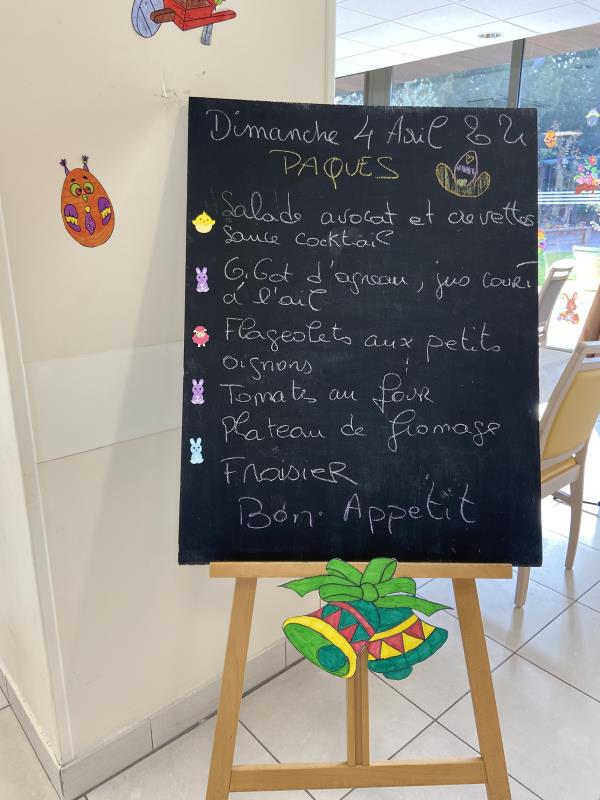 Dimanche 4 Avril 2021
PAQUES
Salade avocat et crevettes
Sauce cocktail
GiGot d'agneau, jus court
à l'ail
Flageolets aux petits
oignons
Tomates au four
Plateau de fromage
FRaisieR
Bon Appetit